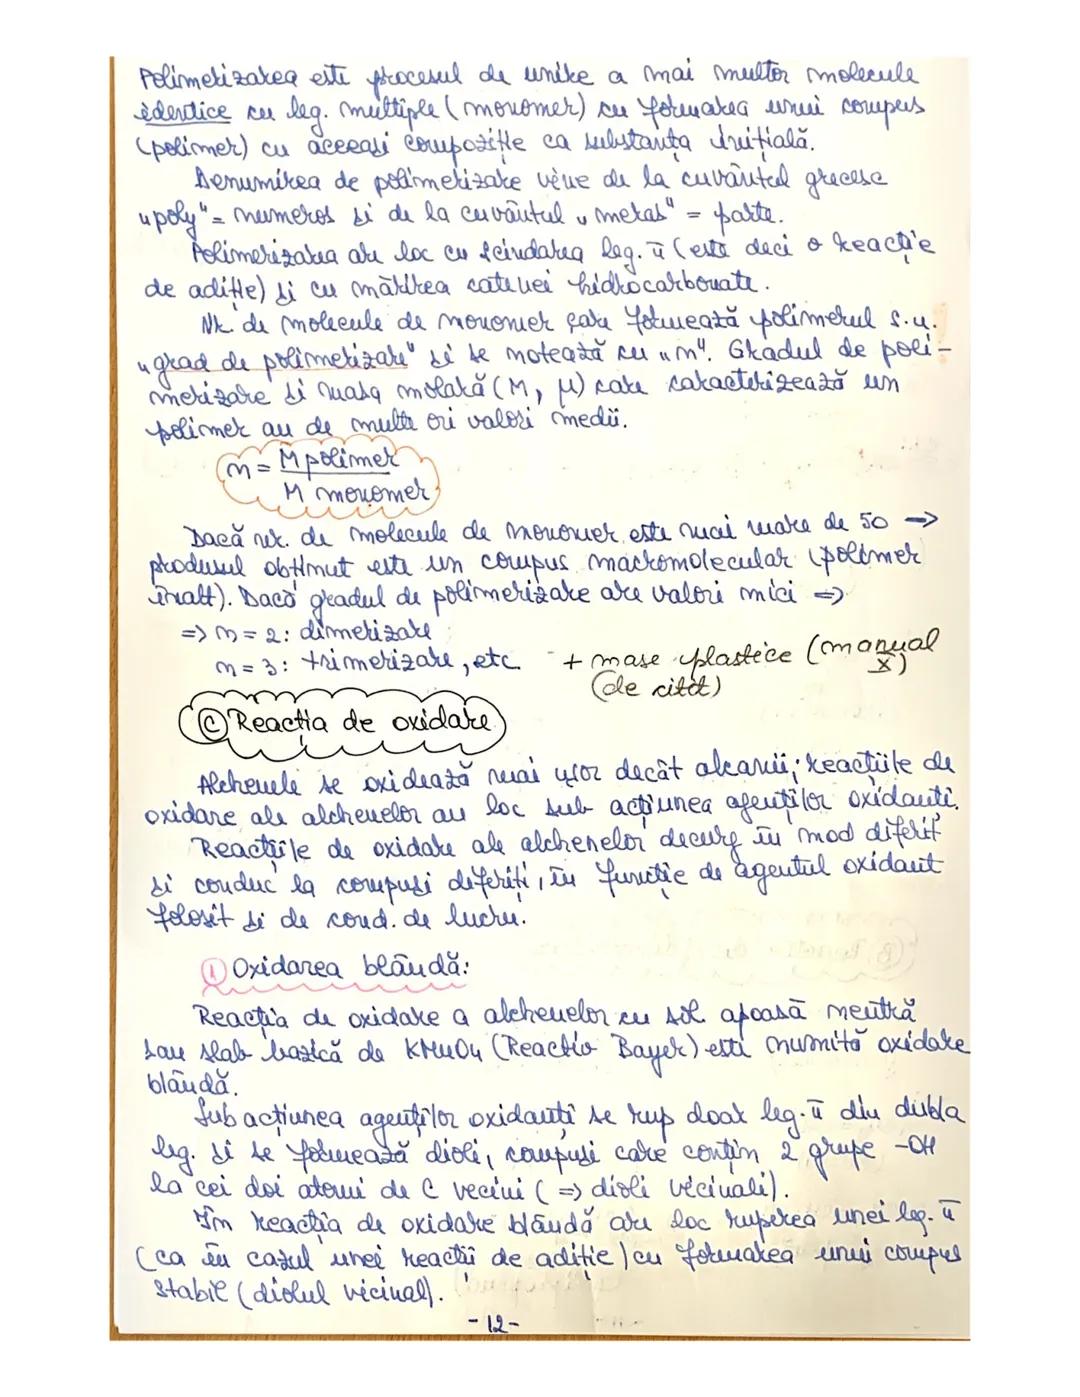 Polimerizarea este procesul de unire a mai multor molecule
identice cu leg. multiple (monomer) cu formarea unui compus
(polimer) cu aceeași compoziție ca substanța inițială.
Denumirea de polimerizare vine de la cuvântul grecesc
„poly" = numeros și de la cuvântul „meras" = parte.
Polimerizarea are loc cu scindarea leg. π (este deci o reacție
de adiție) și cu mărirea catenei hidrocarbonate.
Nr. de molecule de monomer care formează polimerul s.n.
„grad de polimerizare" și se notează cu „n". Gradul de poli-
merizare și masa molară (M, μ) care caracterizează un
polimer au de multe ori valori medii.
n = M polimer
M monomer
Dacă nr. de molecule de monomer este mai mare de 50 →
produsul obținut este un compus macromolecular (polimer
înalt). Dacă gradul de polimerizare are valori mici =>
=> n = 2: dimerizare
n = 3: trimerizare, etc. + mase plastice (manual
X)
(de citit)
C Reacția de oxidare
Alchenele se oxidează mai ușor decât alcanii; reacțiile de
oxidare ale alchenelor au loc sub acțiunea agenților oxidanți.
Reacțiile de oxidare ale alchenelor decurg în mod diferit
și conduc la compuși diferiți, în funcție de agentul oxidant
folosit și de cond. de lucru.
1 Oxidarea blândă:
Reacția de oxidare a alchenelor cu sol. apoasă neutră
sau slab bazică de KMnO4 (Reactiv Bayer) este numită oxidare
blândă.
Sub acțiunea agenților oxidanți se rup doar leg. π din dubla
leg. și se formează dioli, compuși care conțin 2 grupe -OH
la cei doi atomi de C vecini (=> dioli vicinali).
În reacția de oxidare blândă are loc ruperea unei leg. π
(ca în cazul unei reacții de adiție) cu formarea unui compus
stabil (diolul vicinal).
- 12 -